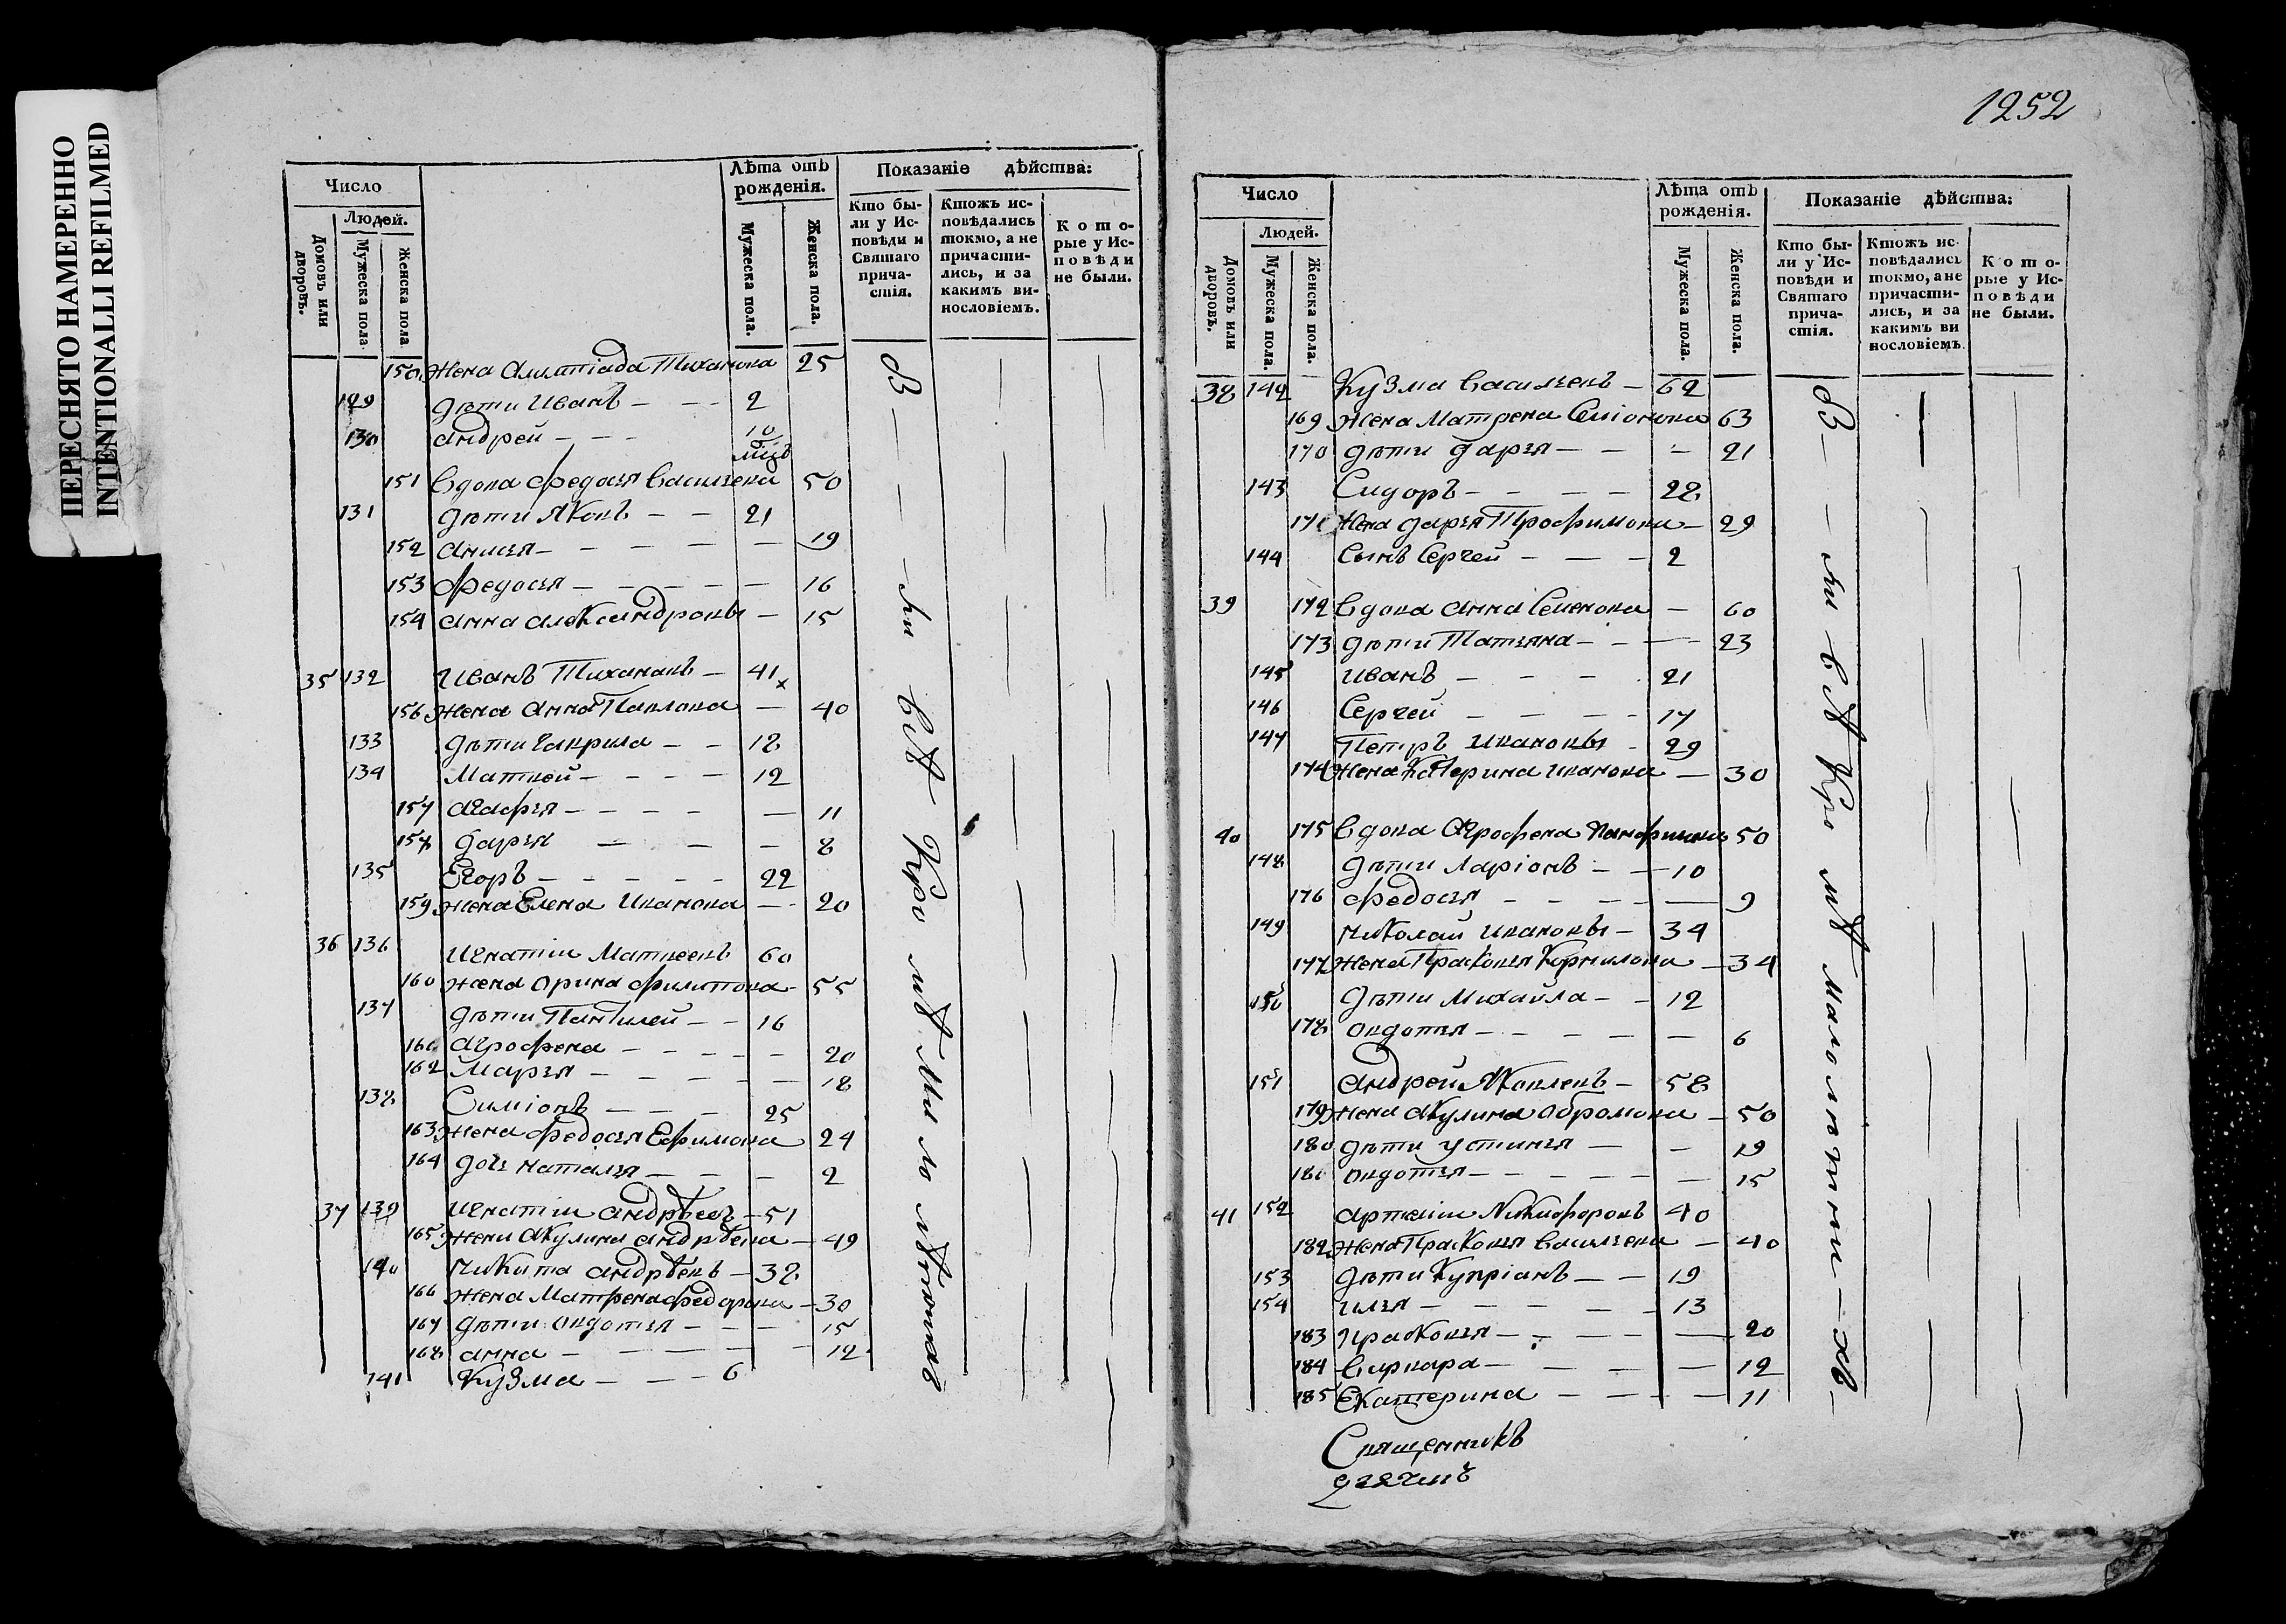 ПЕРЕСНЯТО НАМЕРЕННО
INTENTIONALLI REFILMED
Число
Людей.
Домовъ или дворовъ.
Мужеска пола.
Женска пола.
Лѣта отъ рожденія.
Мужеска пола.
Женска пола.
Показаніе дѣйства:
Кто бы-
ли у Ис-
повѣди и
Святаго
прича-
стія.
Ктожъ ис-
повѣдались
токмо, а не
причасти-
лись, и за
какимъ ви-
нословіемъ.
Кото-
рые у Ис-
повѣди
не были.
150 Жена Алимпіада Тиханова 25
129 дѣти Иванъ — — — 2
130 Андрей — — — 10 мцъ
151 Вдова Федосья Васильева 50
131 дѣти Яковъ — — 21
152 Анисья — — — — — 19
153 Федосья — — — — — 16
154 Анна Александровы — 15
35 132 Иванъ Тихановъ — 41 x
156 Жена Анна Павлова — 40
133 дѣти Гаврила — — 18
134 Матвей — — — — 12
157 Агафья — — — — — 11
158 Дарья — — — 8
135 Егоръ — — — — — 22
159 Жена Елена Иванова — — 20
36 136 Игнатіи Матвеевъ 60
160 Жена Орина Филипова — 55
137 дѣти Пантилей — — 16
161 Агрофена — — — — — 20
162 Марья — — — — — 18
138 Симіонъ — — — 25
163 Жена Федосья Ефимова 24
164 дочь Наталья — — — 2
37 139 Игнатіи Андрѣевъ — 51
165 Жена Акулина Андрѣева — 49
140 Никита Андрѣевъ — 38
166 Жена Матрена Федорова — 30
167 дѣти Овдотья — — — 15
168 Анна — — — — — 12
141 Кузма — — — 6
вѣ Кро мѣ Ма ло лѣтныхъ
1252
Число
Людей.
Домовъ или дворовъ.
Мужеска пола.
Женска пола.
Лѣта отъ рожденія.
Мужеска пола.
Женска пола.
Показаніе дѣйства:
Кто бы-
ли у Ис-
повѣди и
Святаго
прича-
стія.
Ктожъ ис-
повѣдались
токмо, а не
причасти-
лись, и за
какимъ ви
нословіемъ.
Кото-
рые у Ис-
повѣди
не были.
38 142 Кузма Васильевъ — 62
169 Жена Матрена Семіонова 63
170 дѣти Дарья — — — 21
143 Сидоръ — — — — 28
171 Жена Дарья Трофимова — 29
144 Сынъ Сергей — — — 2
39 172 Вдова Анна Семенова — 60
173 дѣти Татьяна — — — 23
145 Иванъ — — — 21
146 Сергей — — — — 17
147 Петръ Ивановы — 29
174 Жена Катерина Иванова — 30
40 175 Вдова Агрофена Панфилова 50
148 дѣти Ларіонъ — — 10
176 Федосья — — — — — 9
149 Николай Ивановы — 34
177 Жена Прасковья Корнилова — 34
150 дѣти Михайла — — 12
178 Овдотья — — — — — 6
151 Андрей Яковлевъ — 58
179 Жена Акулина Обромова — 50
180 дѣти Устинья — — 19
181 Овдотья — — — — — 15
41 152 Артеміи Никифоровъ 40
182 Жена Прасковья Васильева — 40
153 дѣти Купріанъ — — 19
154 Илья — — — — — 13
183 Прасковья — — — — — 20
184 Варвара — — — — — 12
185 Екатерина — — — — 11
вѣ Кро мѣ малолѣтни — хъ —
Священникъ